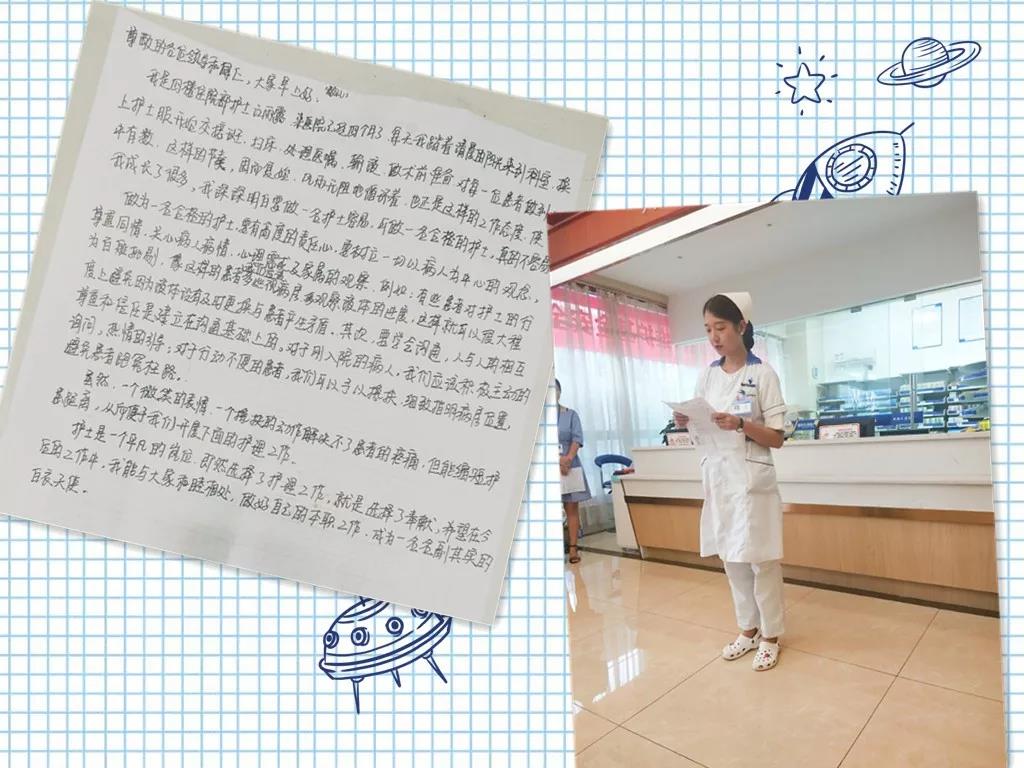 尊敬的各位领导和同仁,大家早上好,
我是四楼住院部护士 来医院已经四个月了 每天我踏着清晨的阳光来到科室,换
上护士服开始交接班,扫床,处理医嘱,输液,做术前准备 对每一位患者做到心
中有数,这样的节奏,因而 也正是这样的工作态度,使
我成长了很多,我深深明白要做一名护士容易,可做一名合格的护士,真的不容易
做为一名合格的护士,要有高度的责任心,要树立一切以病人为中心的观念,
尊重同情,关心病人病情,心理需求及家属的观察,例如:有些患者对护士的分
为 像这样的患者 病房 观察液体的进度,这样就可以很大程
度上避免因为液体没有及时更换与患者产生矛盾,其次,要学会沟通,人与人之间相互
尊重和信任是建立在沟通基础上的。对于刚入院的病人,我们应该积极主动的
询问,热情的引导;对于行动不便的患者,我们可以予以搀扶,细致指明病房位置,
避免患者的冤枉路。
虽然,一个微笑的表情,一个搀扶的动作解决不了患者的疼痛,但能缩短护
患距离,从而便于我们开展下面的护理工作。
护士是一个平凡的岗位,即然选择了护理工作,就是选择了奉献,希望在今
后的工作中,我能与大家和睦相处,做好自己的本职工作,成为一名名副其实的
白衣天使。